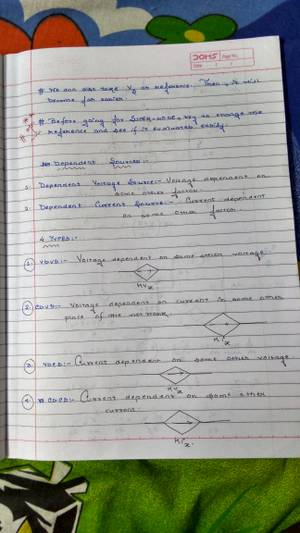 DOMS
Page No.
Date
# We can also take V_y as reference. Then, it will
become far easier.
# Before going for SUPER-NODE, try to change the
reference and see if it eliminates easily.
Dependent Sources:-
1. Dependent Voltage Source:- Voltage dependent on
some other factor.
2. Dependent Current Source:- Current dependent
on some other factor.
4 TYPES:-
1. VDVS:- Voltage dependent on some other voltage
KVx
2. CDVS:- Voltage dependent on current in some other
place of the network.
Kix
3. VDCS:- Current dependent on some other voltage
KVx
4. CDCS:- Current dependent on some other
current
Kix